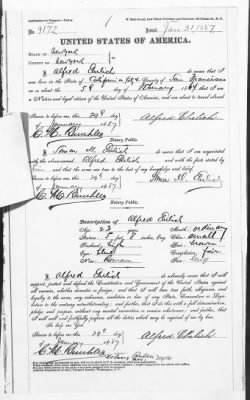 No. 9172
Issued Jan. 31, 1887
UNITED STATES OF AMERICA.
STATE OF New York
COUNTY OF New York
I, Alfred Ehrlich do swear that I
was born in the State of California City & County of San Francisco
on or about the 5th day of February 1864 that I am
a Native and loyal citizen of the United States of America, and am about to travel abroad
Sworn to before me this 29th
day of January 1887
Alfred Ehrlich
Notary Public.
I, Ehrlich do swear that I am acquainted
with the above-named Alfred Ehrlich and with the facts stated by
him
true to the best of my knowledge and belief.
Sworn to before me this 29th
of January 1887
Notary Public.
Description of Alfred Ehrlich
Age: 23 years
Mouth: ordinary
Stature: 5 feet 8 inches, Eng.
Chin: small
Forehead: high
Hair: brown
Complexion: fair
Nose: Roman
Face:
I, Alfred Ehrlich do solemnly swear that I will
support, protect and defend the Constitution and Government of the United States against
all enemies, whether domestic or foreign; and that I will bear true faith, allegiance, and
loyalty to the same, any ordinance, resolution or law of any State, Convention or Legis-
lature to the contrary notwithstanding; and further, that I do this with a full determination,
pledge and purpose, without any mental reservation or evasion whatsoever; and further,
that I will well and faithfully perform all the duties which may be required of me by law.
So help me God.
Sworn to before me this 29th day
of January 1887
Alfred Ehrlich
Notary Public